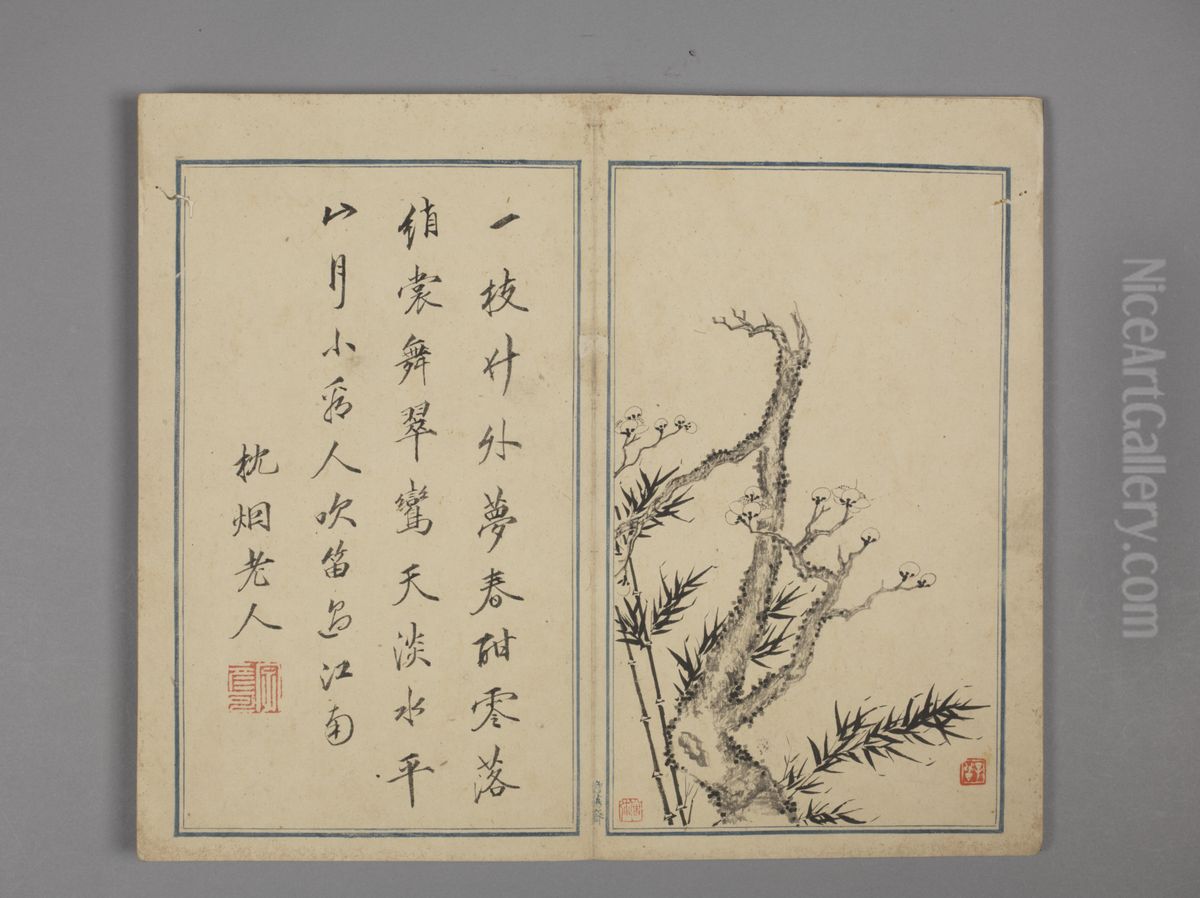 一枝竹外夢春酣零落
綃裳舞翠鸞天淡水平
山月小看人吹笛過江南
枕烟老人
NiceArtGallery.com